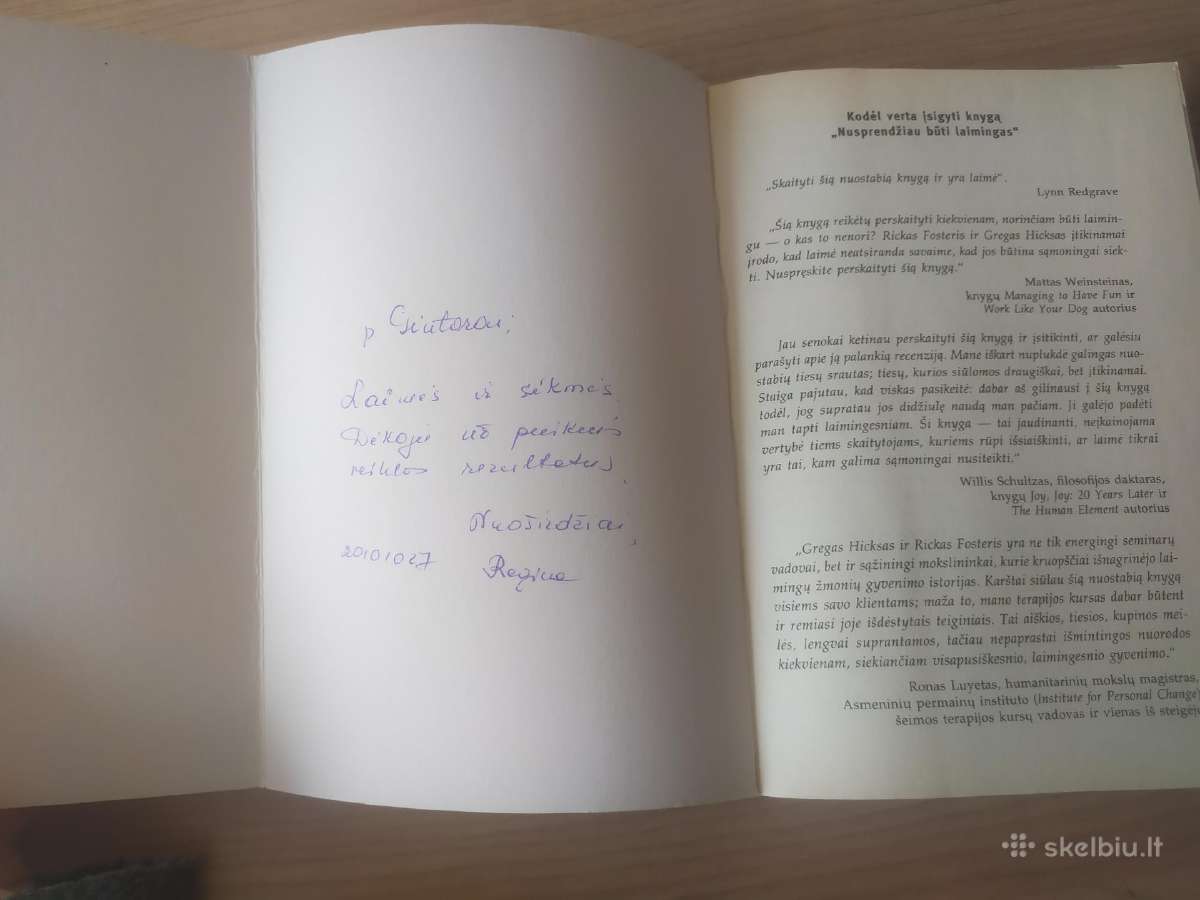 p Gintarai,
Laimės ir sėkmės.
Dėkoju už puikius
veiklos rezultatus.
Nuoširdžiai,
20101027 Regina
Kodėl verta įsigyti knygą
„Nusprendžiau būti laimingas“
„Skaityti šią nuostabią knygą ir yra laimė“.
Lynn Redgrave
„Šią knygą reikėtų perskaityti kiekvienam, norinčiam būti laimin-
gu — o kas to nenori? Rickas Fosteris ir Gregas Hicksas įtikinamai
įrodo, kad laimė neatsiranda savaime, kad jos būtina sąmoningai siek-
ti. Nuspręskite perskaityti šią knygą.“
Mattas Weinsteinas,
knygų Managing to Have Fun ir
Work Like Your Dog autorius
Jau senokai ketinau perskaityti šią knygą ir įsitikinti, ar galėsiu
parašyti apie ją palankią recenziją. Mane iškart nuplukdė galingas nuo-
stabių tiesų srautas; tiesų, kurios siūlomos draugiškai, bet įtikinamai.
Staiga pajutau, kad viskas pasikeitė: dabar aš gilinausi į šią knygą
todėl, jog supratau jos didžiulę naudą man pačiam. Ji galėjo padėti
man tapti laimingesniam. Ši knyga — tai jaudinanti, neįkainojama
vertybė tiems skaitytojams, kuriems rūpi išsiaiškinti, ar laimė tikrai
yra tai, kam galima sąmoningai nusiteikti.“
Willis Schultzas, filosofijos daktaras,
knygų Joy, Joy: 20 Years Later ir
The Human Element autorius
„Gregas Hicksas ir Rickas Fosteris yra ne tik energingi seminarų
vadovai, bet ir sąžiningi mokslininkai, kurie kruopščiai išnagrinėjo lai-
mingų žmonių gyvenimo istorijas. Karštai siūlau šią nuostabią knygą
visiems savo klientams; maža to, mano terapijos kursas dabar būtent
ir remiasi joje išdėstytais teiginiais. Tai aiškios, tiesios, kupinos mei-
lės, lengvai suprantamos, tačiau nepaprastai išmintingos nuorodos
kiekvienam, siekiančiam visapusiškesnio, laimingesnio gyvenimo.“
Ronas Luyetas, humanitarinių mokslų magistras,
Asmeninių permainų instituto (Institute for Personal Change)
šeimos terapijos kursų vadovas ir vienas iš steigėjų
skelbiu.lt